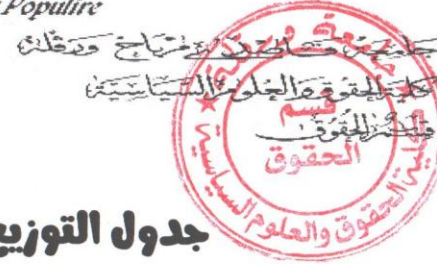 Populire
جامعة قاصدي مرباح ورقلة
كلية الحقوق والعلوم السياسية
قسم الحقوق
قسم
الحقوق
كلية الحقوق والعلوم السياسية
جدول التوزيع